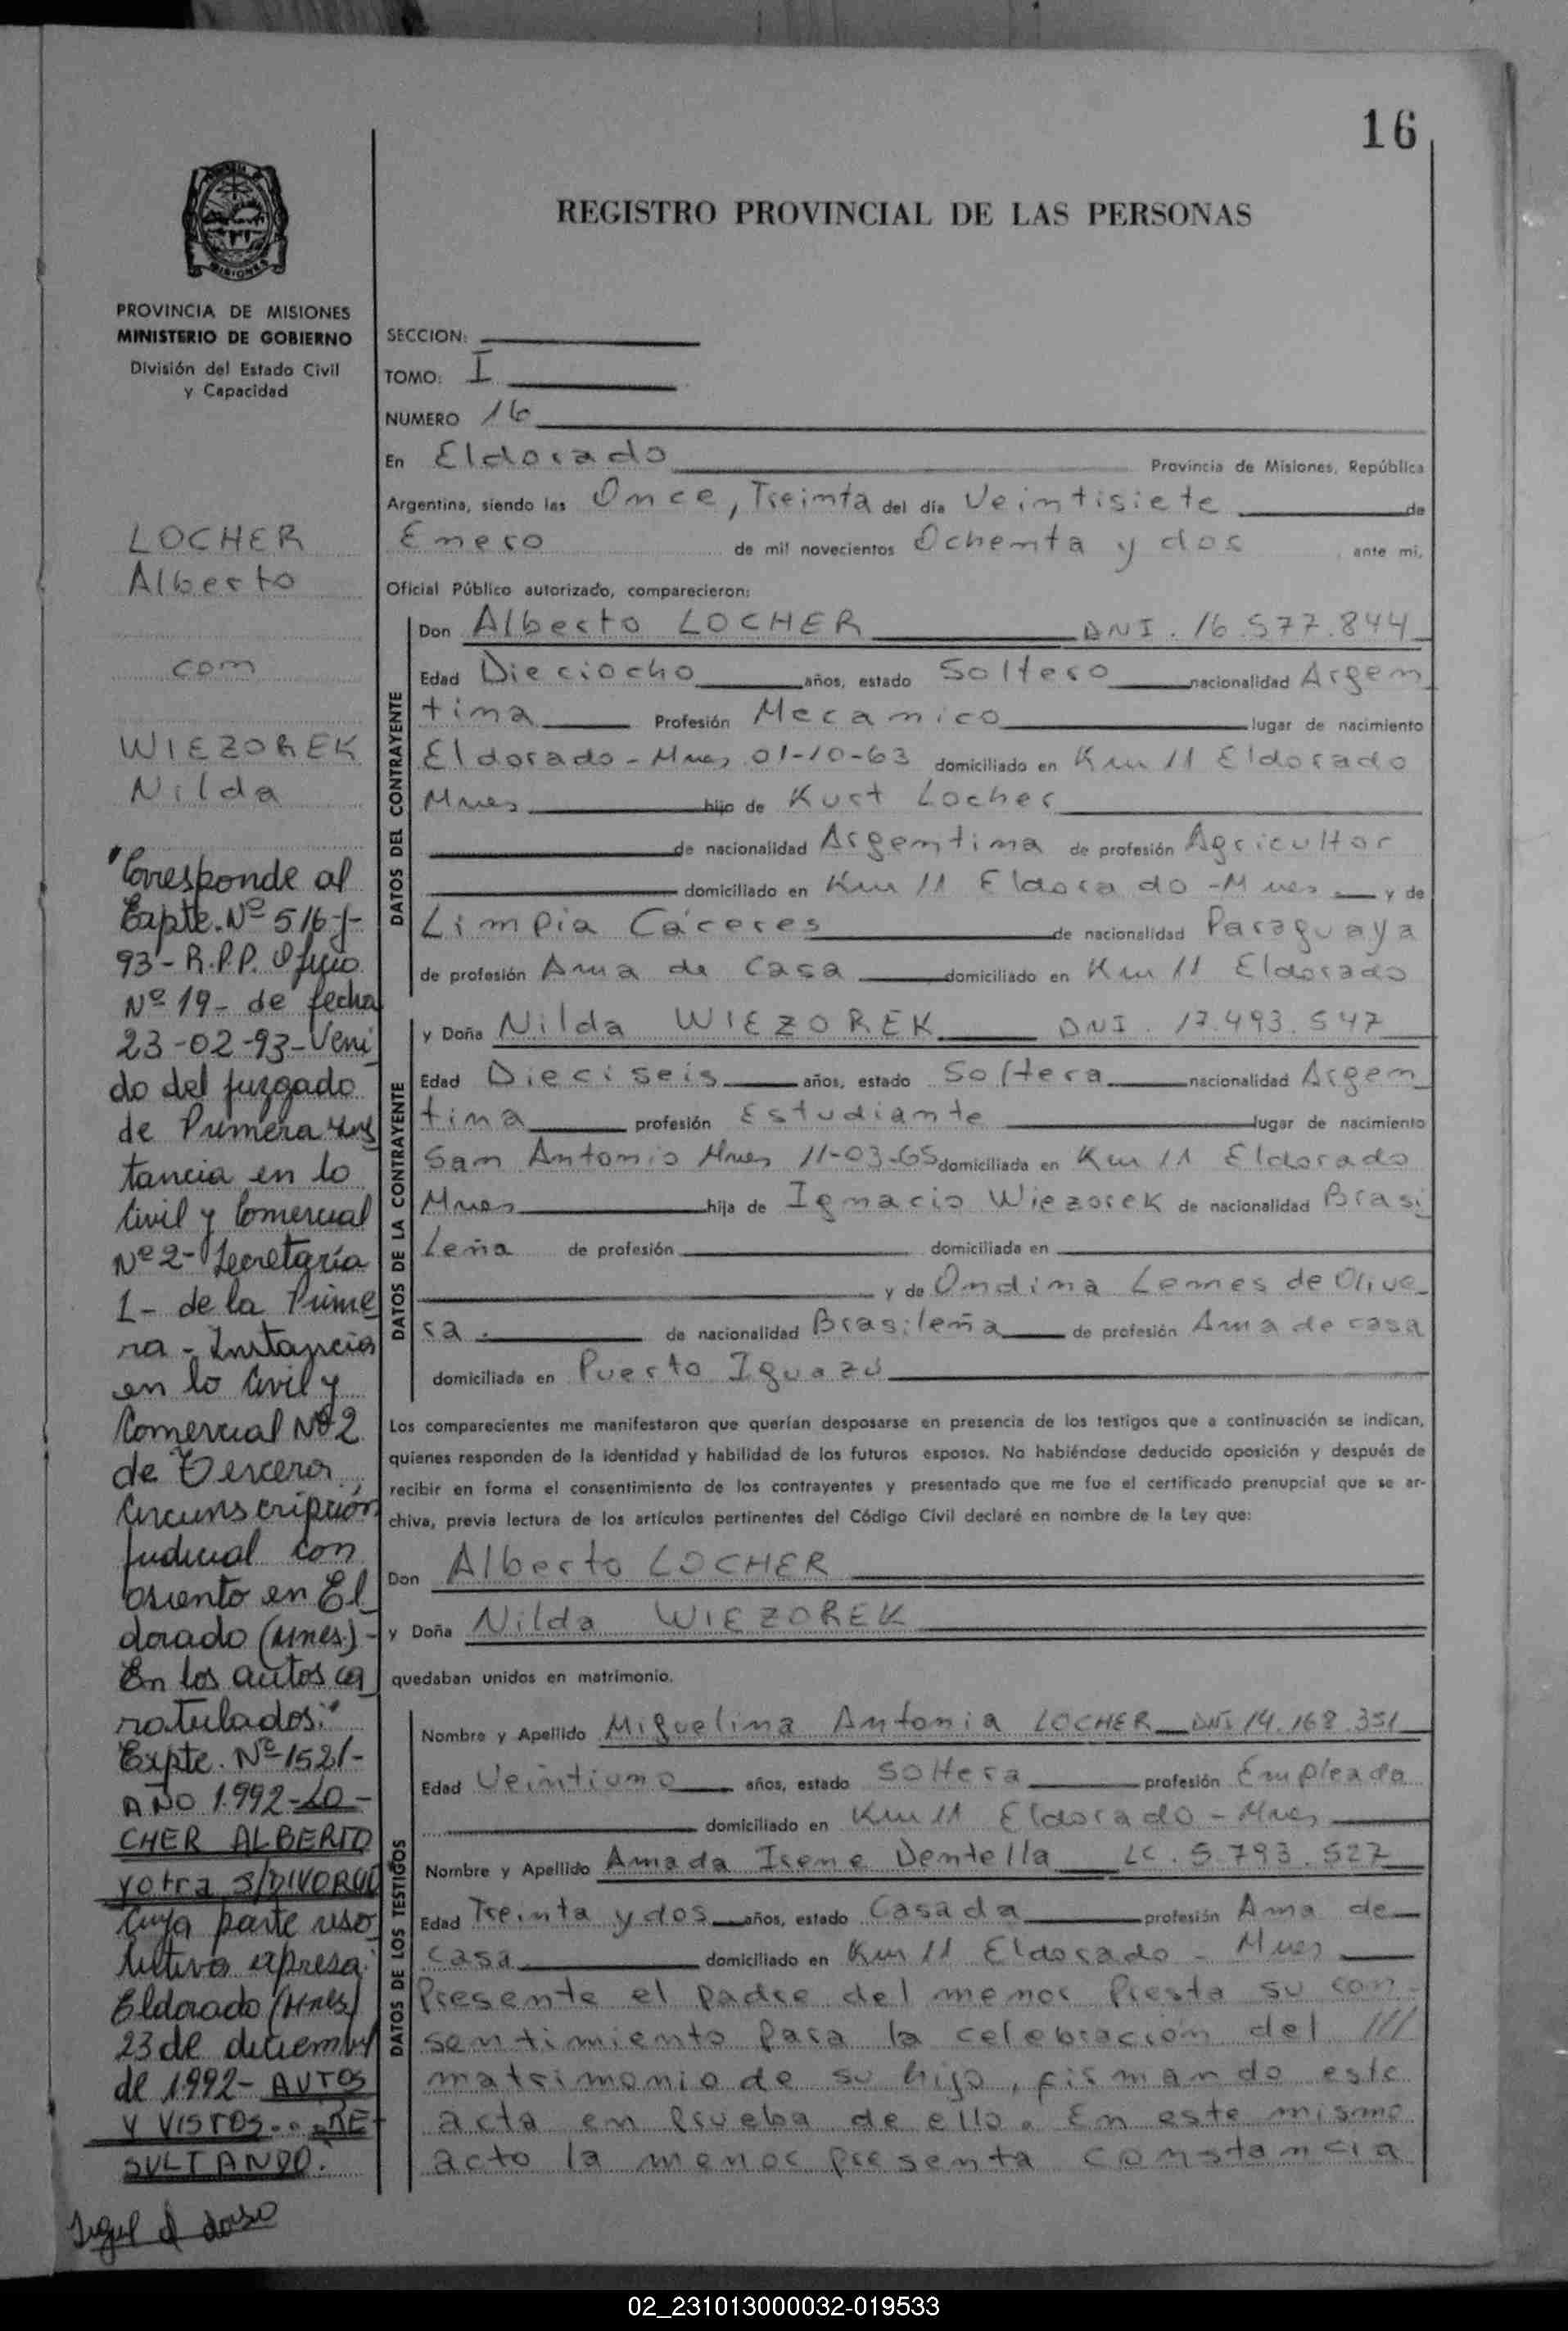 16
REGISTRO PROVINCIAL DE LAS PERSONAS
MISIONES
PROVINCIA DE MISIONES
MINISTERIO DE GOBIERNO
División del Estado Civil
y Capacidad
LOCHER
Alberto
com
WIEZOREK
Nilda
"Corresponde al
Expte. Nº 516-J-
93- R.P.P. Oficio
Nº 19- de fecha
23-02-93- Veni
do del juzgado
de Primera Ins
tancia en lo
Civil y Comercial
Nº 2- Secretaría
1- de la Prime
ra - Instancia
en lo Civil y
Comercial Nº 2
de Tercera
Circunscripción
Judicial con
asiento en El
dorado (Mnes.)-
En los autos ca
ratulados:"
Expte. Nº 1521-
AÑO 1.992-LO-
CHER ALBERTO
y otra S/DIVORCIO
Cuya parte reso
lutiva expresa:
Eldorado (Mnes)
23 de diciembre
de 1992- AUTOS
Y VISTOS... RE-
SULTANDO:
Sigue al dorso
SECCION:
TOMO: I
NUMERO 16
En Eldorado Provincia de Misiones, República
Argentina, siendo las Once, Treinta del día Veintisiete de
Enero de mil novecientos Ochenta y dos ante mi,
Oficial Público autorizado, comparecieron:
DATOS DEL CONTRAYENTE
Don Alberto LOCHER DNI. 16.577.844
Edad Dieciocho años, estado Soltero nacionalidad Argen
tina Profesión Mecanico lugar de nacimiento
Eldorado - Mnes 01-10-63 domiciliado en Km 11 Eldorado
Mnes hijo de Kurt Locher
de nacionalidad Argentina de profesión Agricultor
domiciliado en Km 11 Eldorado - Mnes y de
Limpia Cáceres de nacionalidad Paraguaya
de profesión Ama de Casa domiciliado en Km 11 Eldorado
DATOS DE LA CONTRAYENTE
y Doña Nilda WIEZOREK DNI. 17.493.547
Edad Dieciseis años, estado Soltera nacionalidad Argen
tina profesión Estudiante lugar de nacimiento
San Antonio Mnes 11-03-65 domiciliada en Km 11 Eldorado
Mnes hija de Ignacio Wiezorek de nacionalidad Brasi
leña de profesión domiciliada en
y de Ondina Lemes de Olive
ra. de nacionalidad Brasileña de profesión Ama de casa
domiciliada en Puerto Iguazú
Los comparecientes me manifestaron que querían desposarse en presencia de los testigos que a continuación se indican,
quienes responden de la identidad y habilidad de los futuros esposos. No habiéndose deducido oposición y después de
recibir en forma el consentimiento de los contrayentes y presentado que me fue el certificado prenupcial que se ar-
chiva, previa lectura de los artículos pertinentes del Código Civil declaré en nombre de la Ley que:
Don Alberto LOCHER
y Doña Nilda WIEZOREK
quedaban unidos en matrimonio.
DATOS DE LOS TESTIGOS
Nombre y Apellido Miguelina Antonia LOCHER DNI 14.168.351
Edad Veintiuno años, estado Soltera profesión Empleada
domiciliado en Km 11 Eldorado - Mnes
Nombre y Apellido Amada Irene Dentella LC. 5.793.527
Edad Treinta y dos años, estado Casada profesión Ama de
casa domiciliado en Km 11 Eldorado - Mnes
Presente el padre del menor Presta su con-
sentimiento para la celebración del ///
matrimonio de su hijo, firmando este
acta en Prueba de ello. En este mismo
acto la menor presenta constancia
02_231013000032-019533